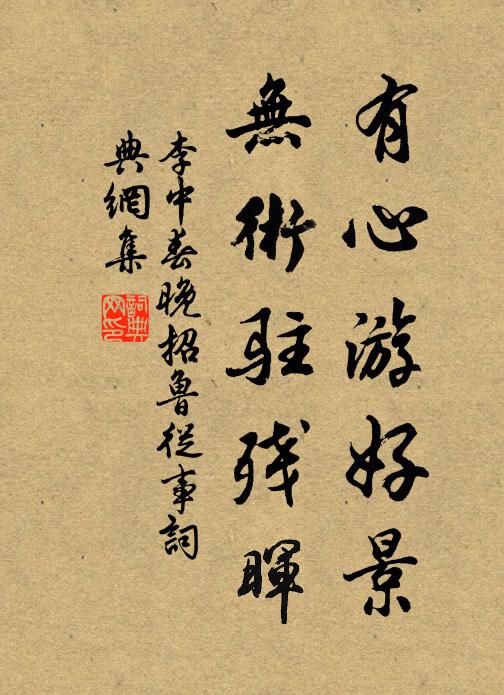 有心游好景
無術駐殘暉
李中春晚招魯從事詞
典網集
詞典网印